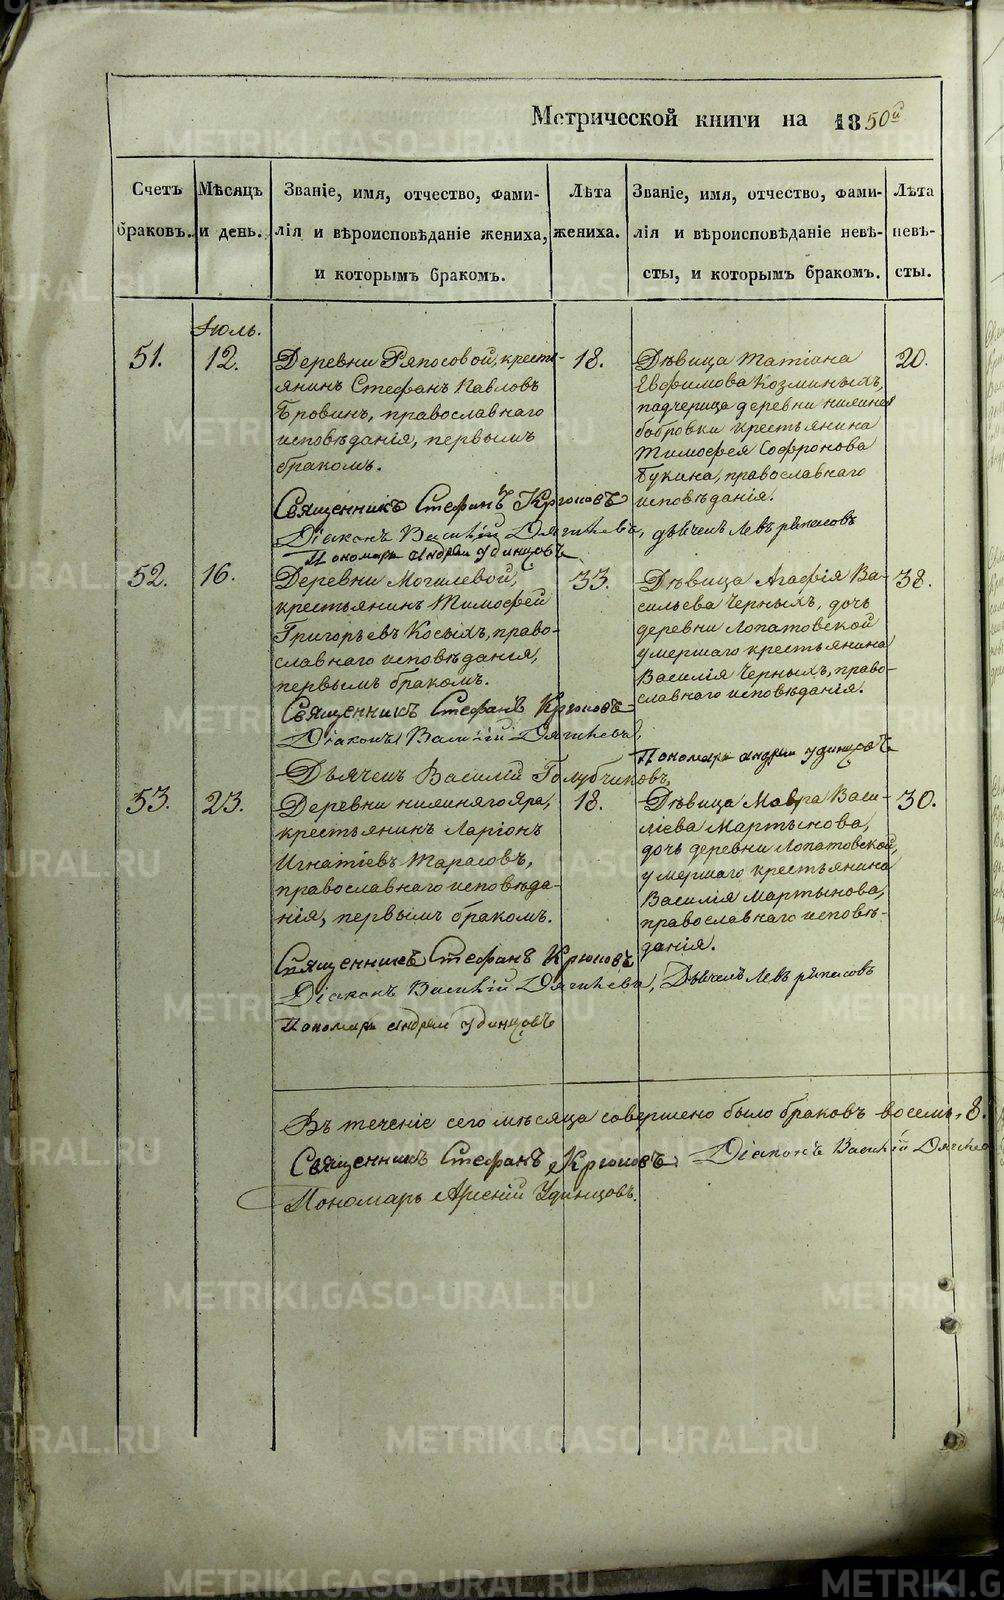 Метрической книги на 1850й
Счетъ Мѣсяцъ Званіе, имя, отчество, фами- Лѣта Званіе, имя, отчество, фами- Лѣта
браковъ. и день. лія и вѣроисповѣданіе жениха, жениха. лія и вѣроисповѣданіе невѣ- невѣ-
и которымъ бракомъ. сты, и которымъ бракомъ. сты.
Іюль.
51. 12.
Деревни Ряпосовой, кресть-
янинъ Стефанъ Павловъ
Бровинъ, православнаго
исповѣданія, первымъ
бракомъ.
18.
Дѣвица Татіана
Евфимова Козминыхъ,
падчерица деревни нижней
бобровки крестьянина
Тимофея Софронова
Букина, православнаго
исповѣданія.
20.
Священникъ Стефанъ Крюковъ
Діаконъ Василій Дягилевъ, дьячекъ Левъ
Пономарь Андрей Удинцовъ
52. 16.
Деревни Могилевой,
крестьянинъ Тимофей
Григорьевъ Косыхъ, право-
славнаго исповѣданія,
первымъ бракомъ.
33.
Дѣвица Агафія Ва-
сильева Черныхъ, дочь
деревни Лопатовской
умершаго крестьянина
Василія Черныхъ, право-
славнаго исповѣданія.
38.
Священникъ Стефанъ Крюковъ
Діаконъ Василій Дягилевъ,
Пономарь Андрей Удинцовъ
Дьячекъ Василій Голубчиковъ,
53. 23.
Деревни нижняго Яра,
крестьянинъ Ларіонъ
Игнатіевъ Тарасовъ,
православнаго исповѣда-
нія, первымъ бракомъ.
18.
Дѣвица Мавра Васи-
лієва Мартынова,
дочь деревни Лопатовской,
умершаго крестьянина
Василія Мартынова,
православнаго исповѣ-
данія.
30.
Священникъ Стефанъ Крюковъ
Діаконъ Василій Дягилевъ, Дьячекъ Левъ
Пономарь Андрей Удинцовъ
Въ теченіе сего мѣсяца совершено было браковъ восемь, 8.
Священникъ Стефанъ Крюковъ. Діаконъ Василій
Пономарь Арсеній Удинцовъ.
METRIKI.GASO-URAL.RU